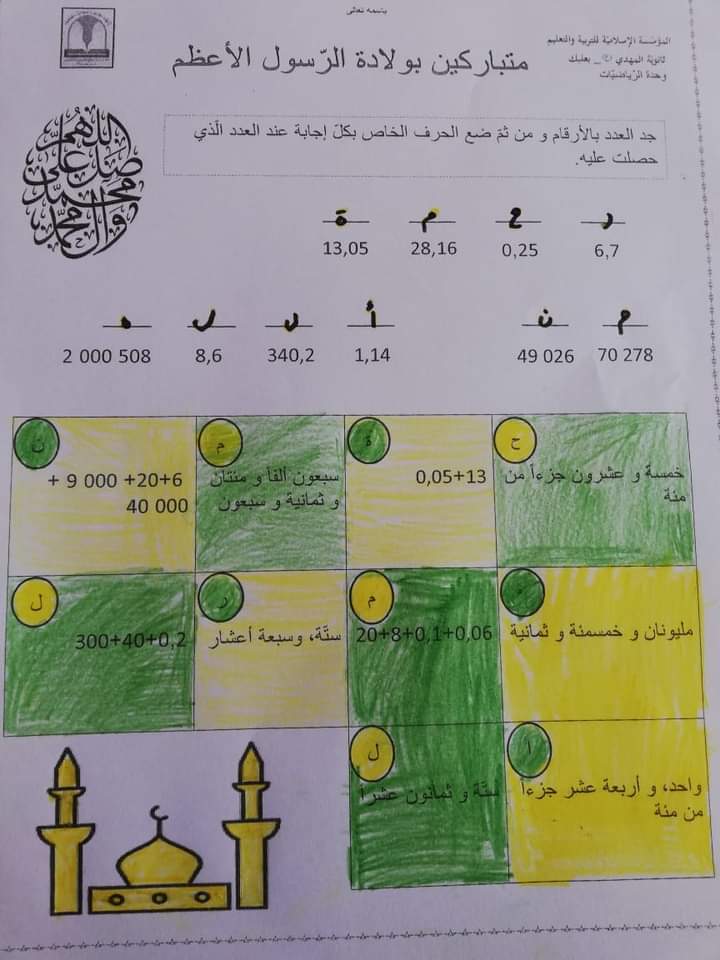 باسمه تعالى
المؤسّسة الإسلاميّة للتربية والتعليم
ثانويّة المهدي _ بعلبك
وحدة الرّياضيّات
متباركين بولادة الرّسول الأعظم
اللهم صل على محمد وآل محمد
جد العدد بالأرقام و من ثمّ ضع الحرف الخاص بكلّ إجابة عند العدد الّذي
حصلت عليه.
ر ح م ة
6,7 0,25 28,16 13,05
م ن أ ل ل ه
70 278 49 026 1,14 340,2 8,6 2 000 508
ح
خمسة و عشرون جزءاً من
مئة
ة
0,05+13
م
سبعون ألفاً و مئتان
و ثمانية و سبعون
ن
+ 9 000 +20+6
40 000
ه
مليونان و خمسمئة و ثمانية
م
20+8+0,1+0,06
ر
ستّة، وسبعة أعشار
ل
300+40+0,2
أ
واحد، و أربعة عشر جزءاً
من مئة
ل
ستّة و ثمانون عشراً